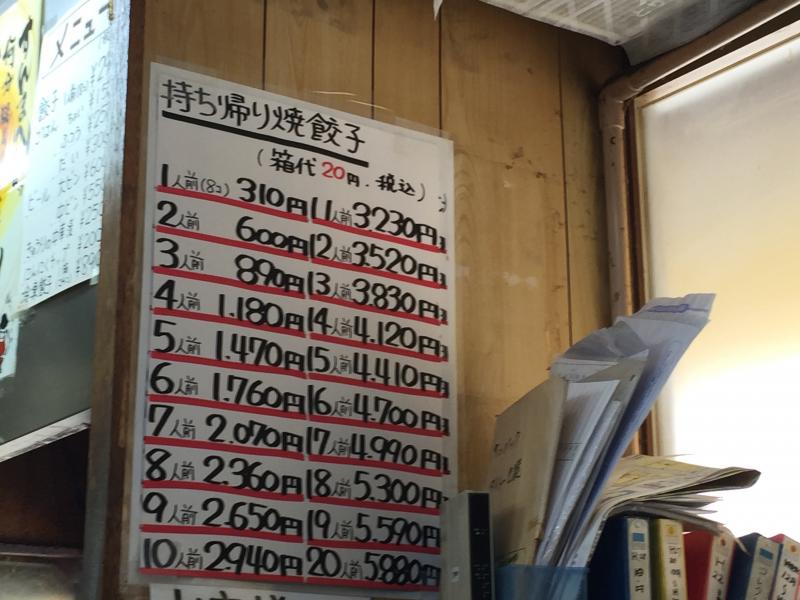 持ち帰り焼餃子
(箱代20円.税込)
1人前(8コ) 310円
2人前 600円
3人前 890円
4人前 1.180円
5人前 1.470円
6人前 1.760円
7人前 2.070円
8人前 2.360円
9人前 2.650円
10人前 2.940円
11人前 3.230円
12人前 3.520円
13人前 3.830円
14人前 4.120円
15人前 4.410円
16人前 4.700円
17人前 4.990円
18人前 5.300円
19人前 5.590円
20人前 5.880円
メニュー
餃子
ビール 大ビン